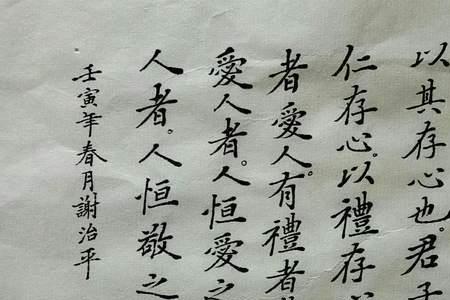 以其存心也。君子
仁存心。以禮存
者愛人。有禮者
愛人者。人恒愛之
人者。人恒敬之
壬寅年春月謝治平